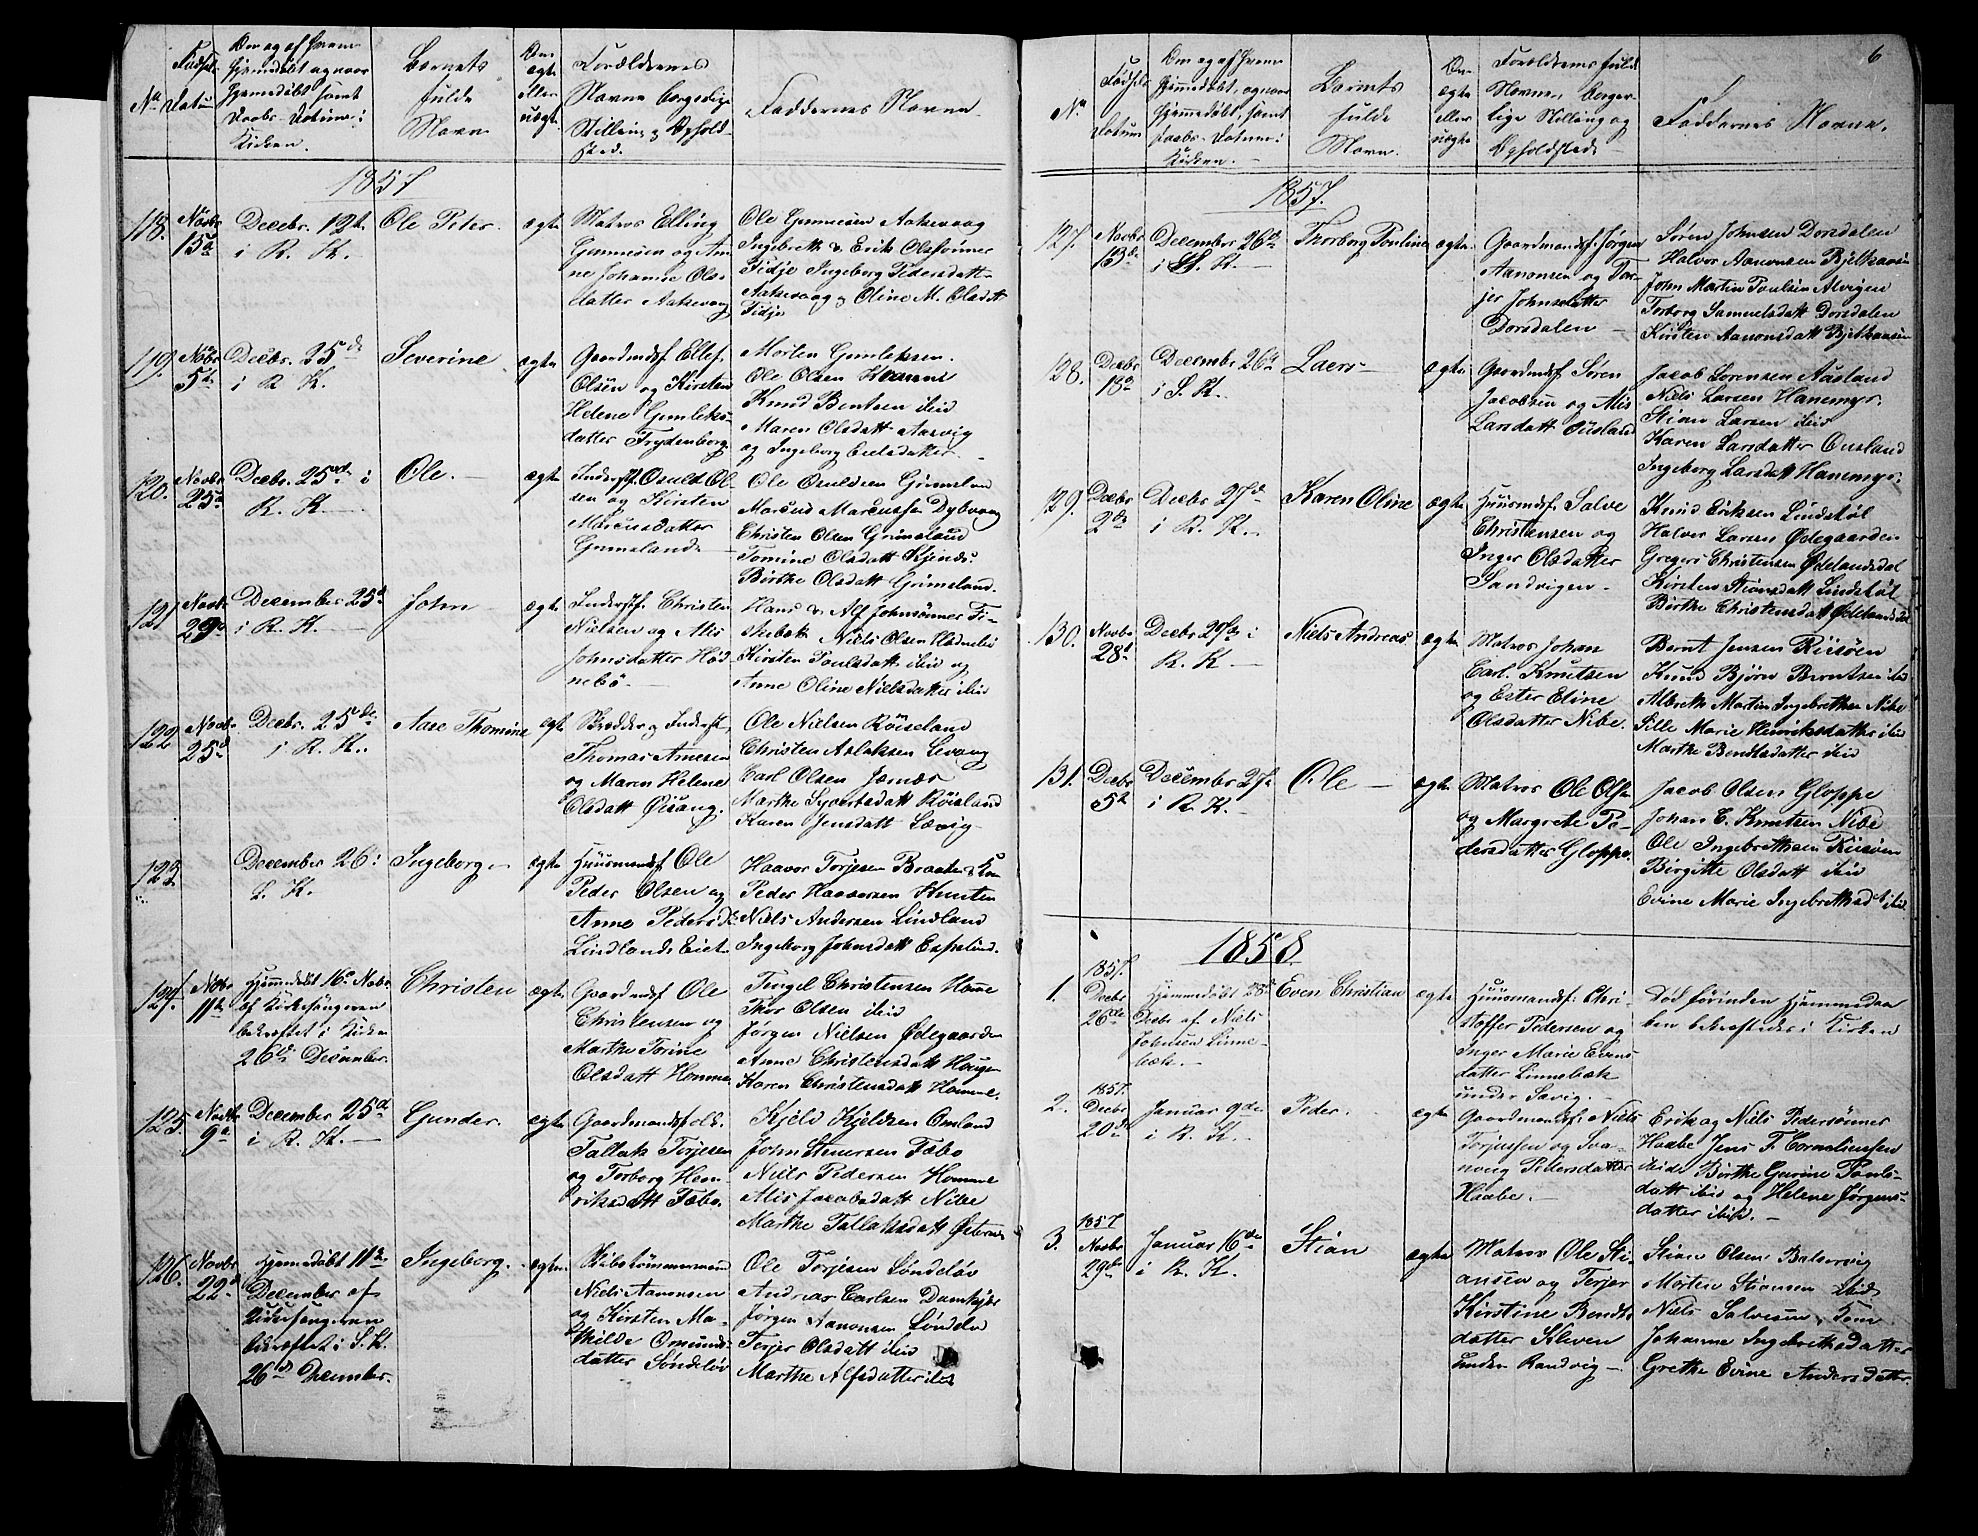 No.
Fødsels Datum
Om og af hvem
hjemmedøbt og naar
hjemmedøbt samt
Daabs-Datum i
Kirken.
Barnets
fulde
Navn
Om
ægte
eller
uægte
Forældrenes
Navne borgerlige
Stilling & Opholds-
sted.
Faddernes Navne.
1857
118.
Novbr
15de
Decebr. 12te
i R. K.
Ole Peter.
ægte
Matros Elling
Gunnesen og An-
ne Johanne Ols-
datter Aakevaag
Ole Gunnesen Aakevaag
Ingebreth & Erik Olssønner
Fidje Ingeborg Pedersdatt
Aakevaag & Oline M. Olsdatt
Fidje
119.
Novbr
5te
Decbr. 25de
i R K.
Severine
ægte
Gaardmdsf. Ellef
Olsen og Kirsten
Helene Gunleks-
datter Frydenborg
Morten Gunleksen.
Ole Olsen
Knud Bentsen ibid
Maren Olsdatt Aasvig
og Ingeborg
120.
Novbr
25de
Decbr. 25de i
R. K.
Ole.
ægte
Inderstf. Osuld Ol-
sen og Kirsten
Marcusdatter
Grimeland
Ole Osuldsen Grimeland
Marcus Marcussen Dybvaag
Christen Olsen Grimeland
Tomine Olsdatt
Børthe Olsdatt Grimeland.
121
Novbr
29de
December 25de
i R. K.
John
ægte
Inderstf. Christen
Nielsen og Alis
Johnsdatter Hød-
nebø
Hans & Alf Johnsønner Fi-
skebæk Niels Olsen
Kirsten Poulsdatt ibid og
Anne Oline Nielsdatter ibid
122
Novbr
25de
Decbr. 25de
i R. K.
Aase Thomine
ægte
Skrædder & Inderst
Thomas Arnesen
og Maren Helene
Olsdatt Øisang.
Ole Nielsen Røiseland
Christen Aslaksen Levang
Carl Olsen Jernæs
Marthe Syversdatt Røisland
Karen Jensdatt Lævig
123.
December 26 i
S. K.
Ingeborg
ægte
Huusmandsf Ole
Peder Olsen og
Anne Pedersd.
Lindlands Eiet
Haavor Torjesen Braaten
Peder Haavorsen
Niels Andersen Lindland
Ingeborg Johnsdatt Espelind.
124.
Novbr
11te
Hjemmedøbt 16de Novbr
af Kirkesangeren
bekræftet i Kirken
26de December.
Christen
ægte
Gaardmdsf Ole
Christensen og
Marthe Torine
Olsdatt Homme
Tengel Christensen Homme
Thor Olsen ibid
Jørgen Nielsen Ødegaarden
Anne Christensdatt Haugen
Karen Christensdatt Homme.
125.
Novbr
9de
December 25de
i R. K.
Gunder
ægte
Gaardmandsfolk
Tallak Torjesen
og Torborg Hen-
riksdatt Fæbo.
Kjeld Kjeldsen Omland
John Stiansen Fæbo
Niels Pedersen Homme
Alis Jacobsdatt Nibe
Marthe Tallaksdatt
126.
Novbr
22de
Hjemmedøbt 11te
December af
Kirkesangeren
bekræftet i S. K.
26de December.
Ingeborg.
ægte
Skibstømmermand
Niels Aanonsen
og Kirsten Ma-
thilde Omunds-
datter Søndeløv
Ole Torjesen Søndeløv
Andreas Carlsen
Jørgen Aanonsen Søndeløv
Terjer Olsdatt ibid
Marthe Alfsdatter ibid
6
No
Fødsels
Datum
Om og af hvem
hjemmedøbt, og naar
hjemmedøbt, samt
Daabs-Datum i
Kirken.
Barnets
fulde
Navn.
Om
ægte
eller
uægte
Forældrenes fulde
Navne, borger-
lige Stilling og
Opholdssted
Faddernes Navne.
1857.
127.
Novbr
13de
December 26de
i S. K.
Thorborg Pouline
ægte
Gaardmandsf. Jørgen
Aanonsen og Ter-
jer Johnsdatter
Dorsdalen
Søren Johnsen Dorsdalen
Halvor Aanonsen Bjelkaasen
John Martin Poulsen Alvigen
Torborg Samuelsdatt Dorsdalen
Kirsten Aanonsdatt Bjelkaasen
128.
Decbr
18de
December 26de
i S. K.
Laers
ægte
Gaardmdsf Søren
Jacobsen og Alis
Larsdatt Ousland
Jacob Sørensen Ausland
Niels Larsen Hanemyr.
Stian Larsen ibid
Karen Larsdatter Ousland
Ingeborg Larsdatt Hanemyr.
129.
Decbr
2de
Decbr 27de
i R. K.
Karen Oline
ægte
Huusmdsf. Salve
Christensen og
Inger Olsdatter
Sandvigen
Knud Eriksen Lindstøl
Halvor Larsen Ødegaarden
Gregers Christensen Ødelandsdal
Kirsten Stiansdatt Lindstøl
Børthe Christensdatt Ødelandsdal
130.
Novbr
28de
Decbr 27de i
R. K.
Niels Andreas.
ægte
Matros Johan
Carl Knutsen
og Ester Eline
Olsdatter Nibe.
Bernt Jensen Riisøen
Knud Bjørn Berntsen ibid
Albreth Martin Ingebrethsen Nibe
Sille Marie Henriksdatter ibid
Marthe Bendtsdatter ibid
131.
Decbr
5te
December 27de
i R. K.
Ole
ægte
Matros Ole Olsen
og Margrete Pe-
dersdatter Gloppe.
Jacob Olsen Gloppe
Johan C. Knutsen Nibe
Ole Ingebrethsen Riisøen
Birgitte Olsdatt ibid
Evine Marie Ingebrethsdatt ibid
1858
1.
1857.
Decbr
26de
Hjemmedøbt 28de
Decbr af Niels
Johnsen Linne-
bæk.
Even Christian
ægte
Huusmandsf: Chri-
stoffer Pedersen og
Inger Marie Evens-
datter Linnebæk
under Savig.
Død førinden Hjemmedaa-
ben bekræftedes i Kirken
2.
1857.
Decbr
20de
Januar 9de
i R. K.
Peder.
ægte
Gaardmandsf: Niels
Torjussen og Sva-
noug Pedersdatter
Haabe.
Erik og Niels Pedersønner
Haabe Jens F. Corneliussen
ibid Børthe Gurine Pouls-
datt ibid og Helene Jørgens-
datter ibid.
3.
1857
Novbr
29de
Januar 16de
i R. K.
Stian
ægte
Matros Ole Sti-
ansen og Terjer
Kirstine Bendts
datter
under Randvig
Stian Olsen
Morten Stiansen ibid
Niels Salvesen
Johanne Ingebrethsdatter
Grethe Evine Andersdatter.